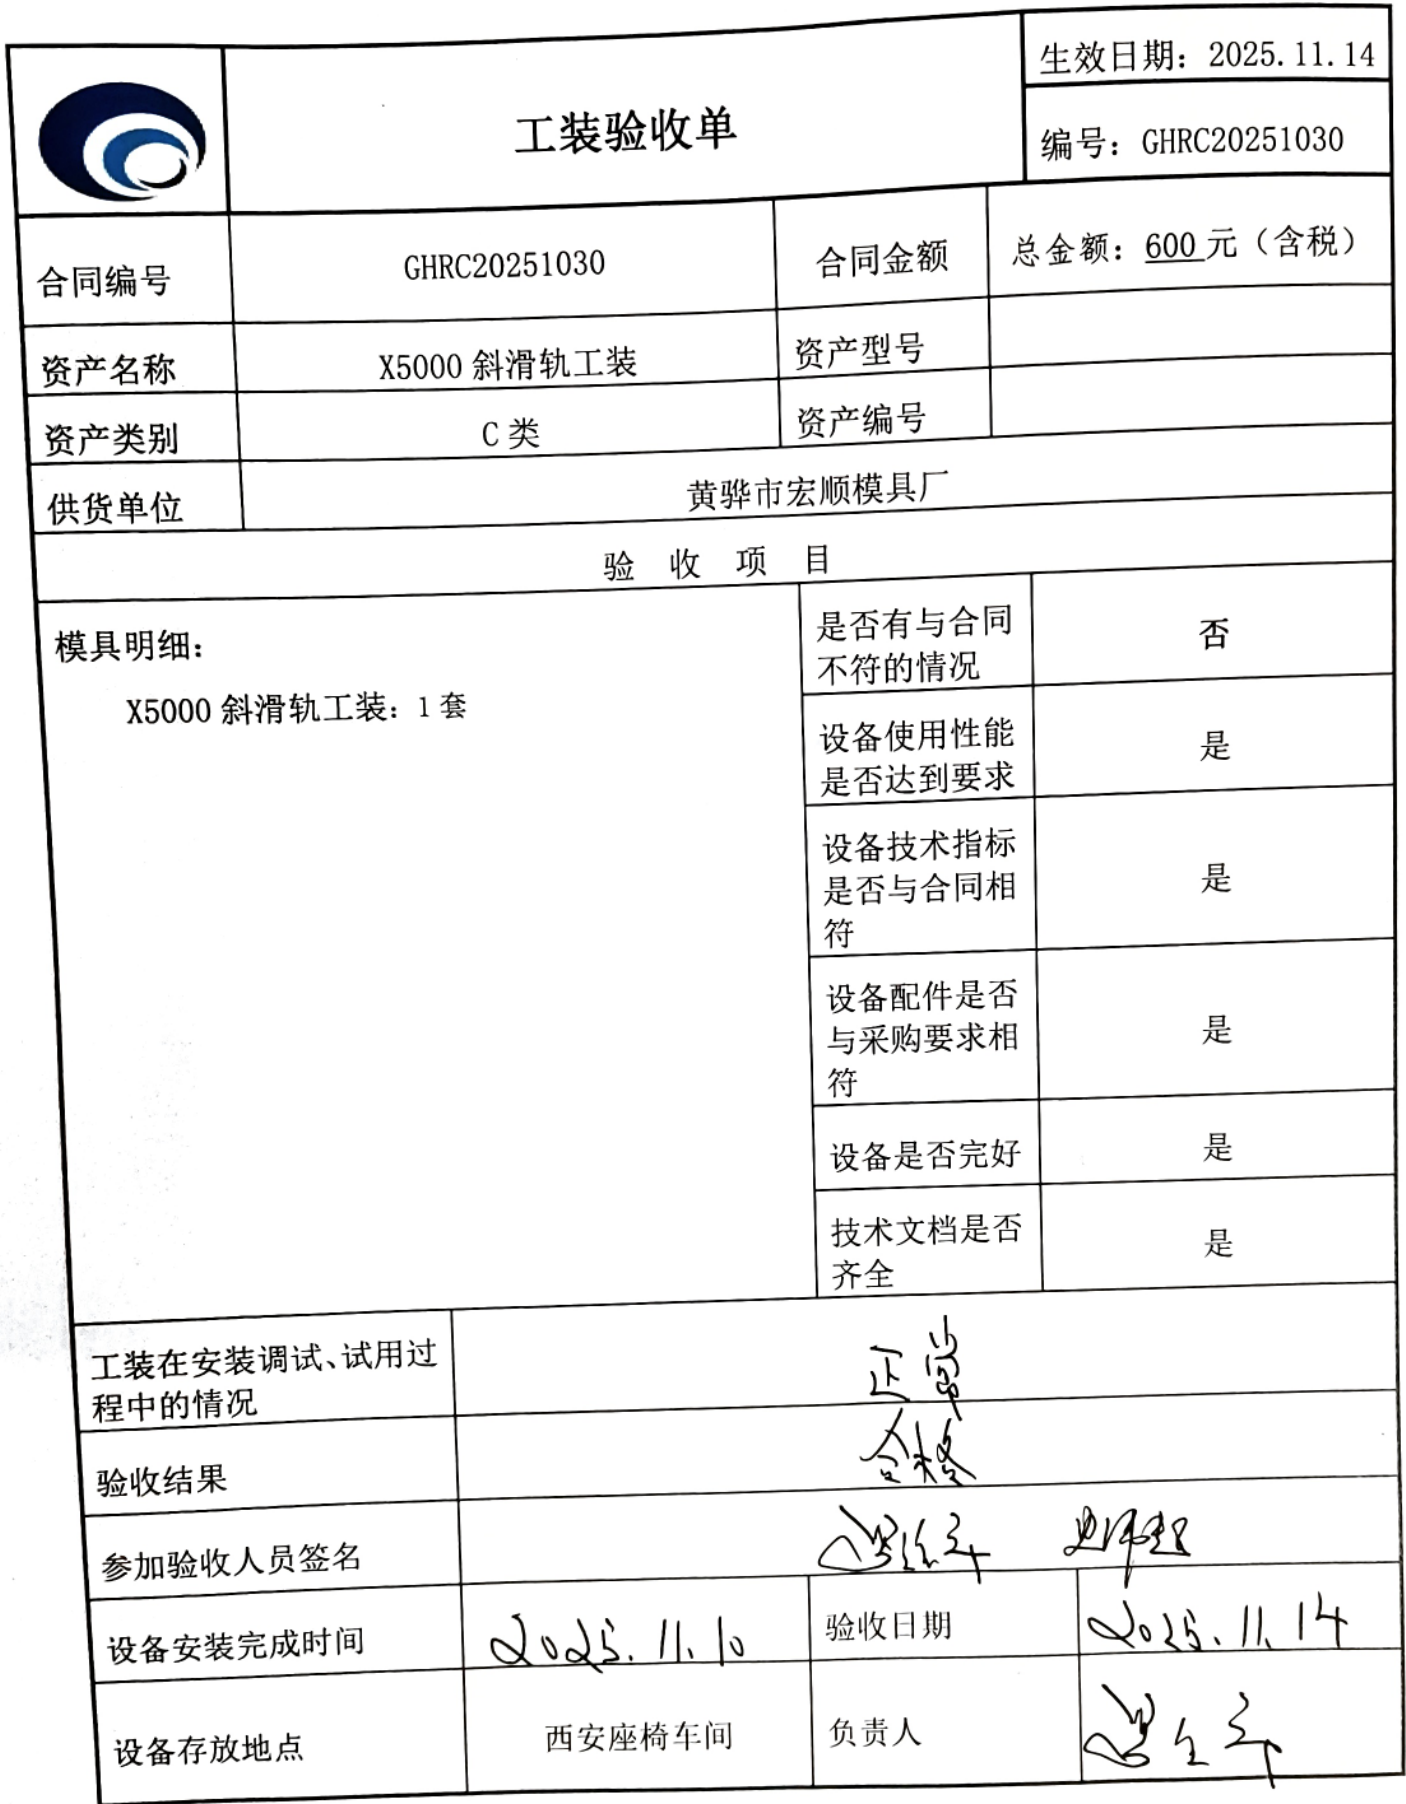 生效日期：2025.11.14
工装验收单
编号：GHRC20251030
合同编号 GHRC20251030 合同金额 总金额：600元（含税）
资产名称 X5000 斜滑轨工装 资产型号
资产类别 C 类 资产编号
供货单位 黄骅市宏顺模具厂
验 收 项 目
模具明细：
X5000 斜滑轨工装：1 套
是否有与合同
不符的情况
否
设备使用性能
是否达到要求
是
设备技术指标
是否与合同相
符
是
设备配件是否
与采购要求相
符
是
设备是否完好 是
技术文档是否
齐全
是
工装在安装调试、试用过
程中的情况
正常
验收结果 合格
参加验收人员签名
设备安装完成时间 2025.11.10 验收日期 2025.11.14
设备存放地点 西安座椅车间 负责人